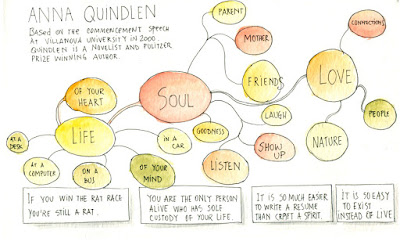 ANNA QUINDLEN
BASED ON THE COMMENCEMENT SPEECH
AT VILLANOVA UNIVERSITY IN 2000
QUINDLEN IS A NOVELIST AND PULITZER
PRIZE WINNING AUTHOR.
PARENT
CONNECTIONS
MOTHER
OF YOUR
HEART
SOUL
FRIENDS
LOVE
LAUGH
PEOPLE
LIFE
GOODNESS
AT A
DESK
IN A
CAR
SHOW
UP
NATURE
AT A
COMPUTER
ON A
BUS
OF YOUR
MIND
LISTEN
IF YOU WIN THE RAT RACE
YOU'RE STILL A RAT.
YOU ARE THE ONLY PERSON
ALIVE WHO HAS SOLE
CUSTODY OF YOUR LIFE.
IT IS SO MUCH EASIER
TO WRITE A RESUME
THAN CRAFT A SPIRIT.
IT IS SO EASY
TO EXIST
INSTEAD OF LIVE.